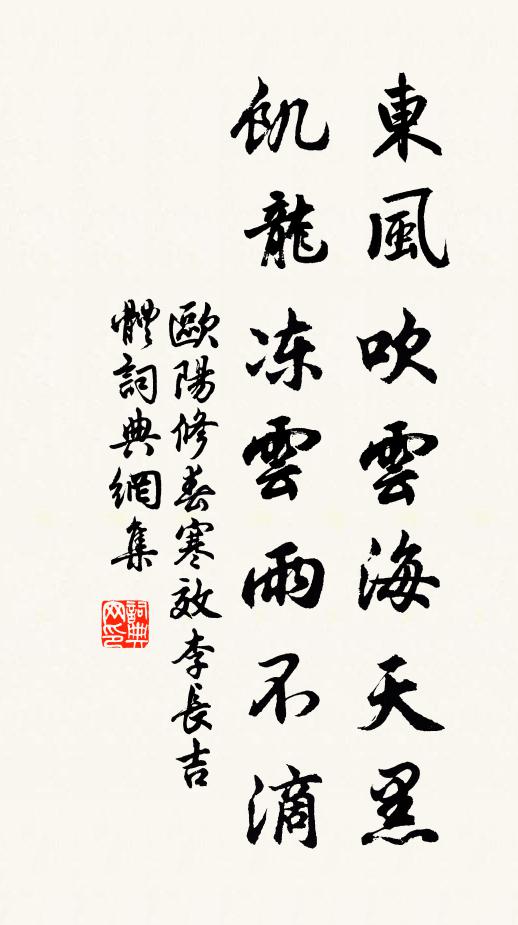 東風吹雲海天黑
飢龍凍雲雨不滴
歐陽修春寒效李長吉
體詞典網集
詞典网印